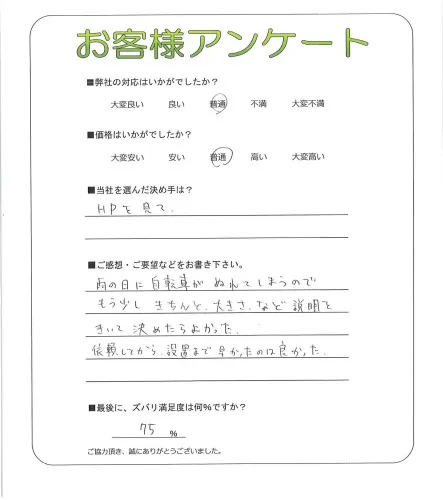 お客様アンケート
■弊社の対応はいかがでしたか？
大変良い 良い 普通 不満 大変不満
■価格はいかがでしたか？
大変安い 安い 普通 高い 大変高い
■当社を選んだ決め手は？
HPを見て、
■ご感想・ご要望などをお書き下さい。
雨の日に自転車がぬれてしまうので
もう少しきちんと、大きさ、など説明を
きいて決めたらよかった。
依頼してから、設置まで早かったのは良かった。
■最後に、ズバリ満足度は何%ですか？
75 %
ご協力頂き、誠にありがとうございました。